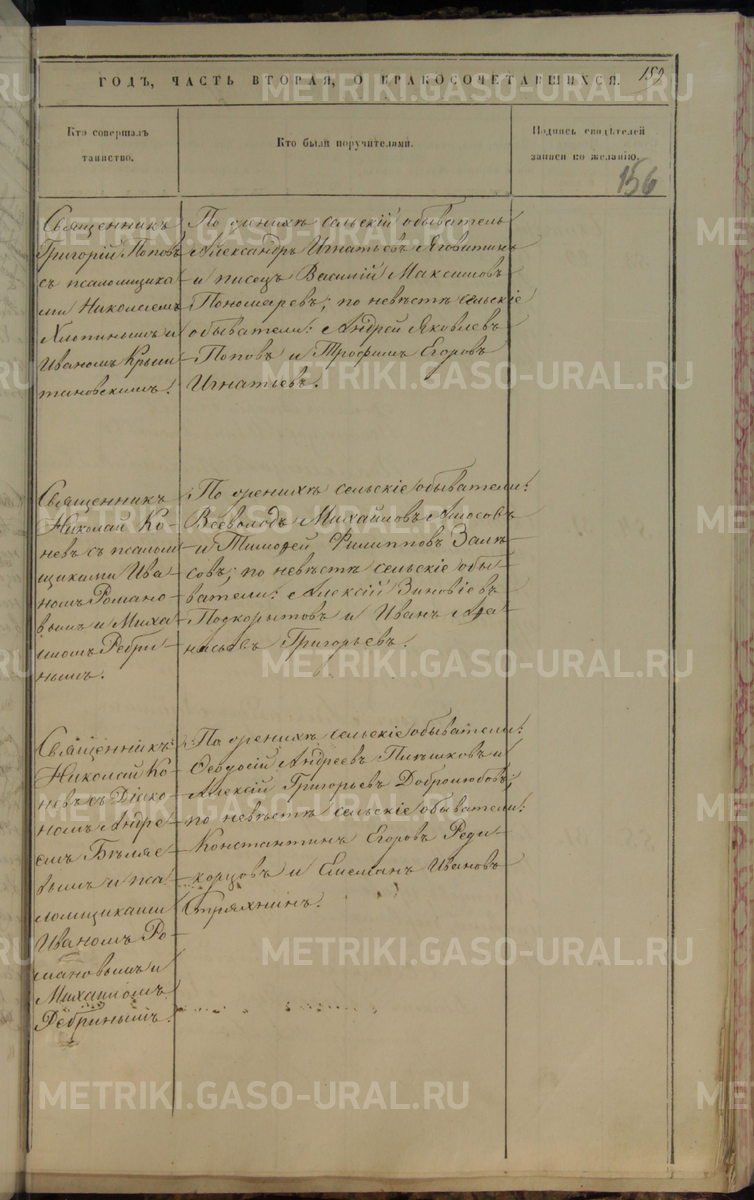 ГОДЪ, ЧАСТЬ ВТОРАЯ, О БРАКОСОЧЕТАВШИХСЯ.
Кто совершалъ
таинство.
Кто были поручителями.
Подпись свидѣтелей
записи по желанію.
156
Священникъ
Григорій Поповъ
съ псаломщика
ми Николаемъ
Хлопинымъ и
Иваномъ Крыш
тановскимъ.
По женихѣ сельскій обыватель
Александръ Игнатьевъ Яговитинъ
и писецъ Василій Максимовъ
Пономаревъ; по невѣстѣ сельскіе
обыватели: Андрей Яковлевъ
Поповъ и Трофимъ Егоровъ
Игнатьевъ.
Священникъ
Николай Ко-
невъ съ псалом
щиками Ива
номъ Романо-
вымъ и Миха
иломъ Ребри-
нымъ.
По женихѣ сельскіе обыватели:
Всеволодъ Михайловъ Амосовъ
и Тимофей Филипповъ Залѣ
совъ; по невѣстѣ сельскіе обы-
ватели: Алексій Зиновіевъ
Подкорытовъ и Иванъ Афа
насьевъ Григорьевъ.
Священникъ
Николай Ко-
невъ съ Діако-
номъ Андре-
емъ Бѣляе-
вымъ и пса
ломщиками
Иваномъ Ро-
мановымъ и
Михаиломъ
Ребринымъ.
По женихѣ сельскіе обыватели:
Ѳеодосій Андреевъ Пилешковъ и
Алексій Григорьевъ Добролюбовъ;
по невѣстѣ сельскіе обыватели:
Константинъ Егоровъ Реди-
корцовъ и Емельянъ Ивановъ
Стряхнинъ.
METRIKI.GASO-URAL.RU